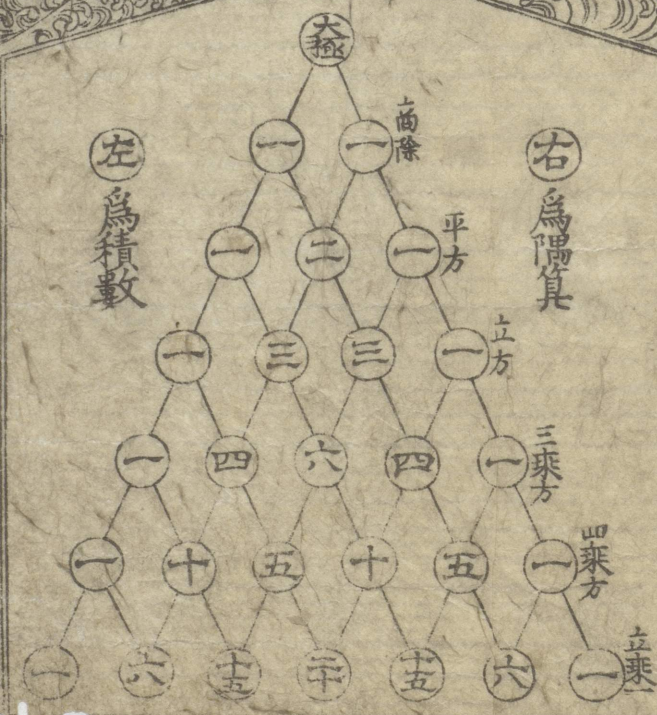 太極
左為積數
右為隅算
一 一 商除
一 二 一 平方
一 三 三 一 立方
一 四 六 四 一 三乘方
一 十 五 十 五 一 四乘方
一 六 十五 二十 十五 六 一